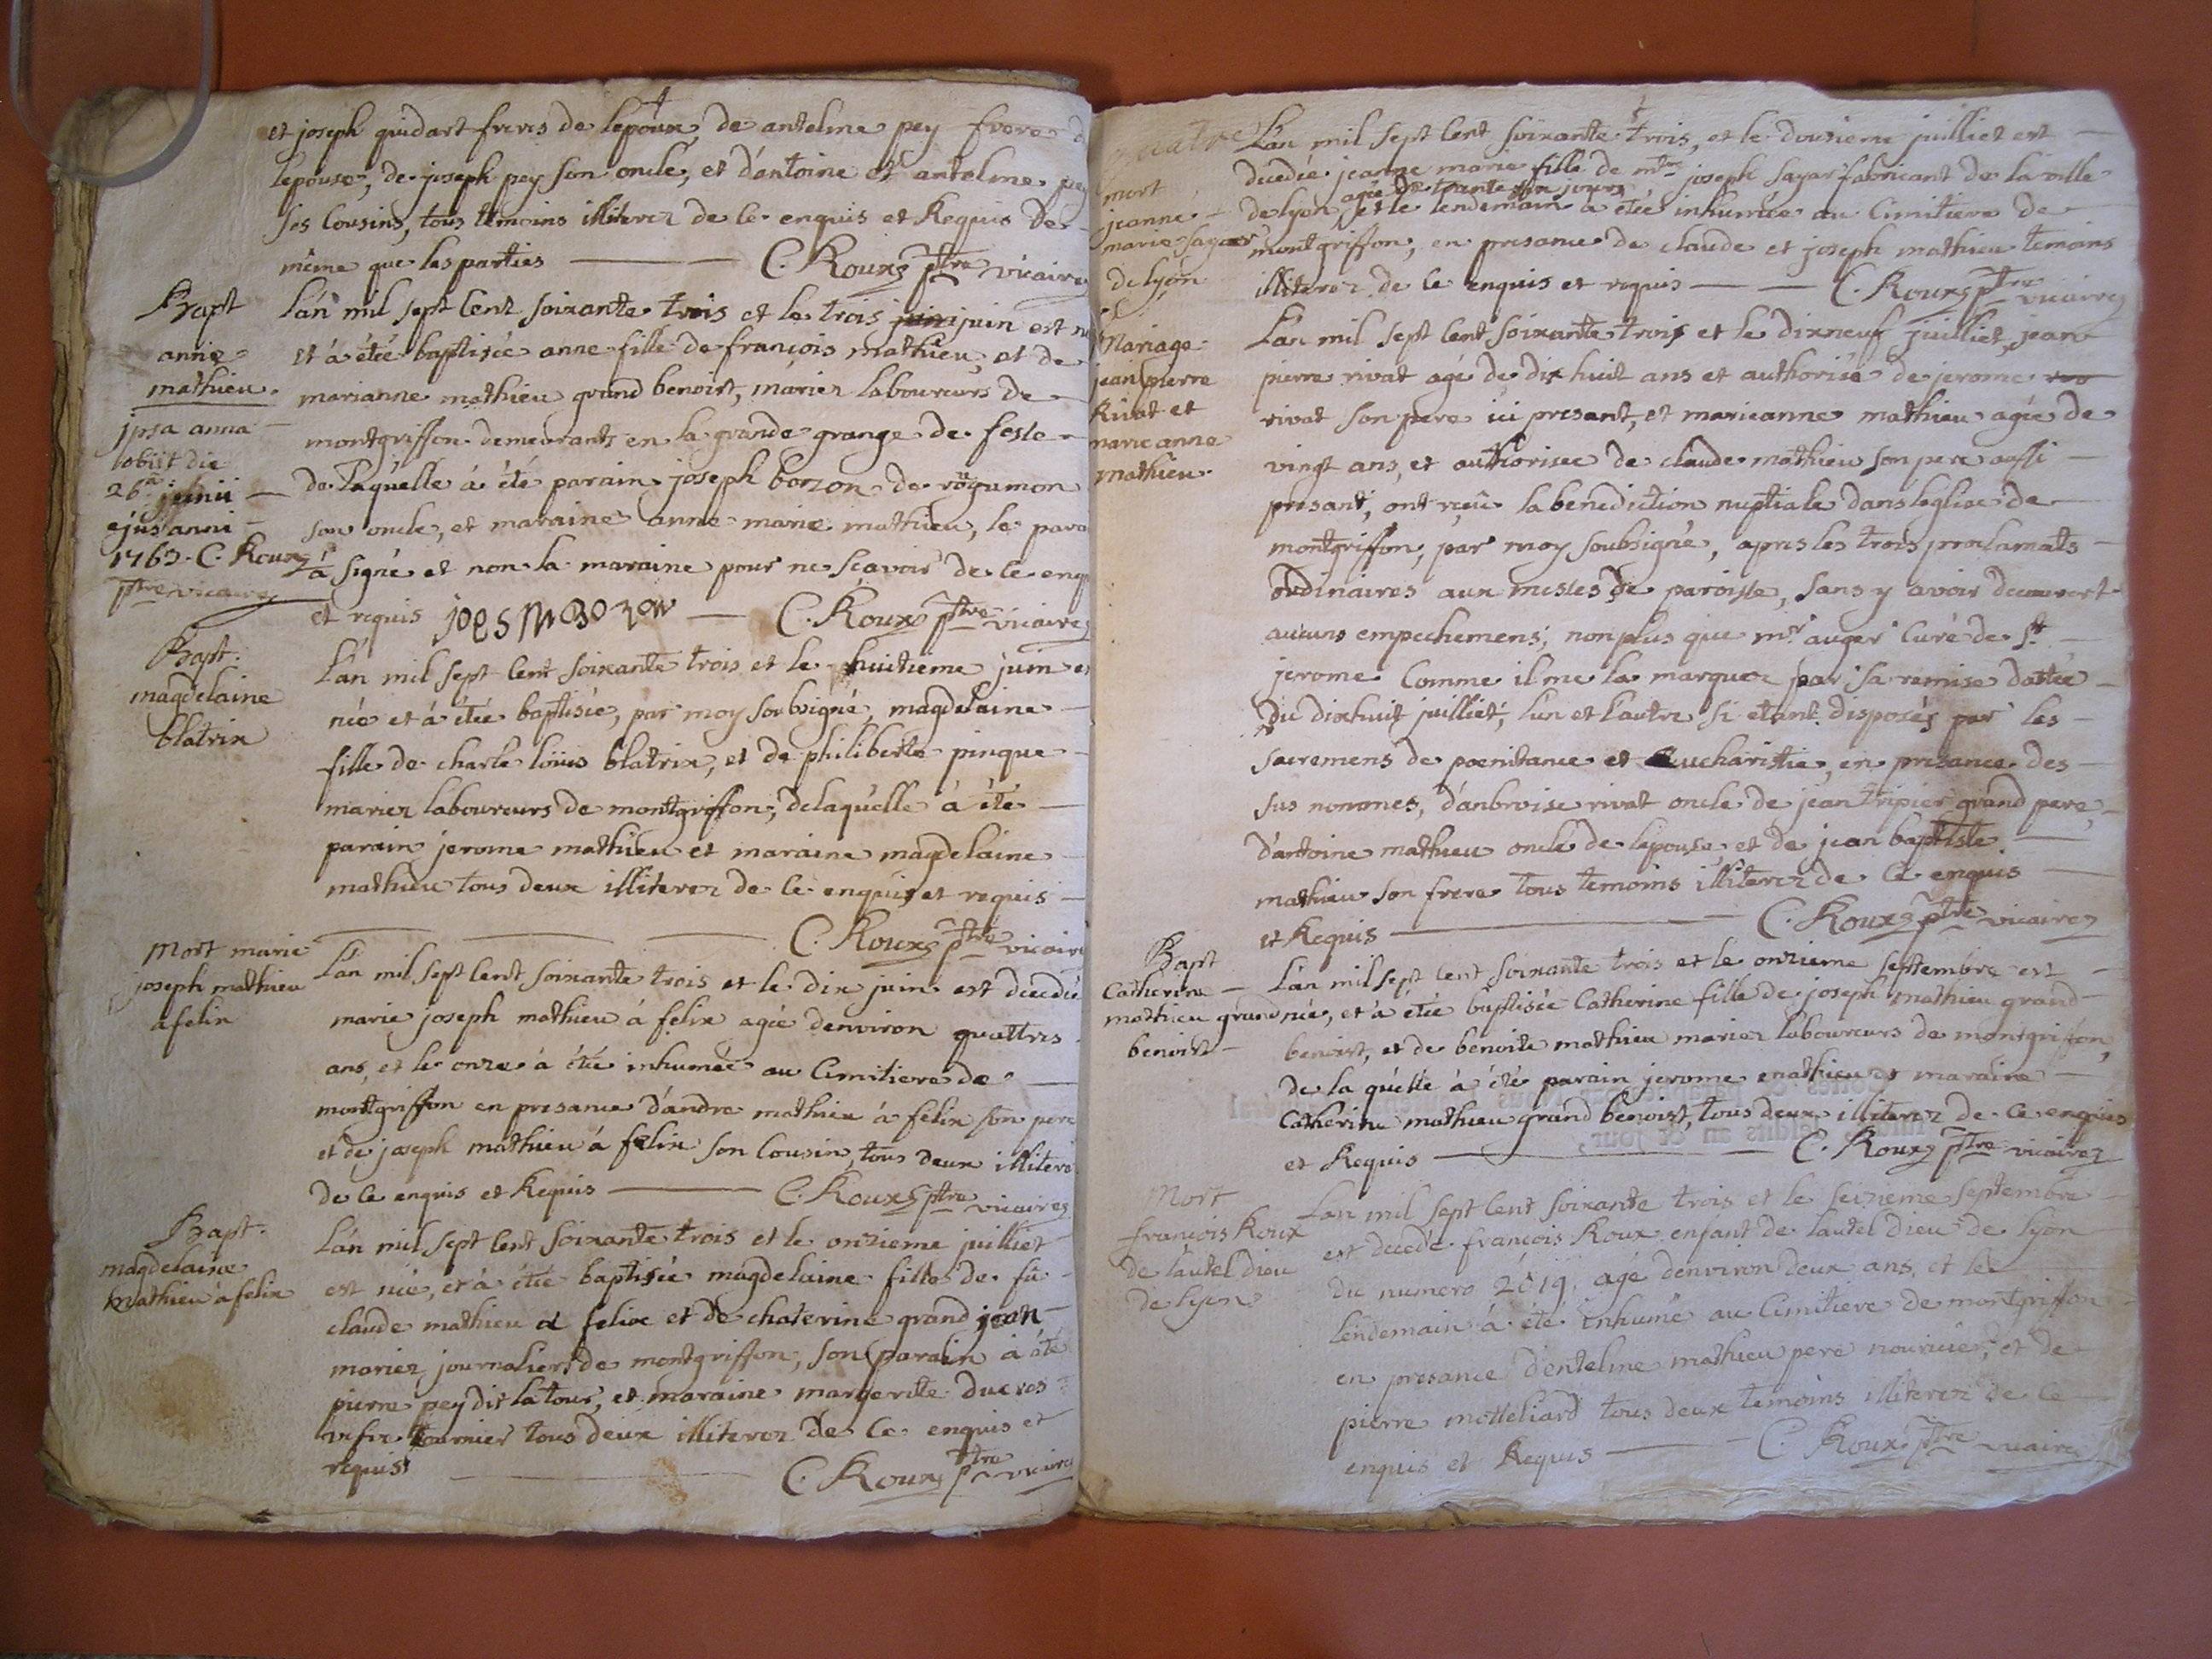 et joseph guidart freres de lepoux, de antelme pey frere
lepouse, de joseph pey son oncle, et d'antoine et antelme pey
ses Cousins, tous temoins illiterez de ce enquis et Requis de
même que les parties C. Roux ptre vicaire
Bapt
anne
mathieu
ipsa anna
obiit die
26a junii
ejus anni
1763. C. Roux
ptre vicaire
L'an mil sept cent soixante trois et le trois juin est
et à étée baptisée anne fille de françois mathieu, et de
marianne mathieu grand benoist, mariez laboureurs de
montgriffon demeurants en la grande grange de fesle
de laquelle à été parain joseph bozon de
son oncle, et maraine anne marie mathieu, le
à signé et non la maraine pour ne sçavoir de ce
et requis C. Roux ptre vicaire
Bapt.
magdelaine
blatrix
L'an mil sept cent soixante trois et le huitieme juin
née et à étée baptisée, par moy soubsigné, magdelaine
fille de charle loüis blatrix, et de philiberte pinque
mariez laboureurs de montgriffon, delaquelle à été
parain jerome mathieu et maraine magdelaine
mathieu tous deux illiterez de ce enquis et requis
C. Roux ptre vicaire
Mort marie
joseph mathieu
à felix
L'an mil sept cent soixante trois et le dix juin est decedée
marie joseph mathieu à felix agée denviron quattres
ans, et le onze à étée inhumée au Cimitiere de
montgriffon en presance d'andre mathieu à felix son pere
et de joseph mathieu à felix son Cousin, tous deux
de ce enquis et Requis C. Roux ptre vicaire
Bapt.
magdelaine
Mathieu à felix
L'an mil sept cent soixante trois et le onzieme juilliet
est née, et à étée baptisée magdelaine fille de fû
claude mathieu à felix et de chaterine grand jean
mariez journaliers de montgriffon, son parain à été
pierre pey dit la tour, et maraine margerite ducros
tournier tous deux illiterez de ce enquis et
requis C. Roux ptre vicaire
quatre
mort
jeanne
marie sayar
de lyon
L'an mil sept cent soixante trois, et le dousieme juilliet est
decedée jeanne marie fille de mtre joseph sayar fabricant de la ville
agée de trante six jours
de lyon, et le lendemain à étée inhumée au Cimitiere de
montgriffon, en presance de claude et joseph mathieu temoins
illiterez de ce enquis et requis C. Roux ptre vicaire
Mariage
jean pierre
Rivat et
marieanne
mathieu
L'an mil sept cent soixante trois et le dixneuf juilliet, jean
pierre rivat agé de dix huit ans et authorisé de jerome
rivat son pere ici presant, et marieanne mathieu agée de
vingt ans, et authorisée de claude mathieu son pere aussi
presant, ont reçûe la benediction nuptiale dans leglise de
montgriffon, par moy soubsigné, apres les trois proclamats
ordinaires aux messes de paroisse, sans y avoir decouvert
aucuns empechemens, non plus que mr auger Curé de St
jerome Comme il me la marquez par sa remise dattée
du dixhuit juilliet, l'un et l'autre si etant disposés par les
sacremens de poenitance et Eucharistie, en presance des
sus nommes, d'anbroise rivat oncle de jean tripier grand pere,
d'antoine mathieu oncle de lepouse, et de jean baptiste
mathieu son frere tous temoins illiterez de ce enquis
et Requis C. Roux ptre vicaire
Bapt
Catherine
mathieu grand
benoist
L'an mil sept cent soixante trois et le onzieme septembre est
née, et à étée baptisée Catherine fille de joseph mathieu grand
benoist, et de benoite mathieu mariez laboureurs de montgriffon,
de la quelle à été parain jerome mathieu et maraine
Catherine mathieu grand benoist, tous deux illiterez de ce enquis
et Requis C. Roux ptre vicaire
Mort
françois Roux
de lautel dieu
de lyon
L'an mil sept cent soixante trois et le seizieme septembre
est decedé françois Roux enfant de lautel dieu de lyon
du numero 2619. agé denviron deux ans, et le
lendemain à été inhumé au Cimitiere de montgriffon
en presance d'entelme mathieu pere nouricier, et de
pierre motteliard tous deux temoins illiterez de ce
enquis et Requis C. Roux ptre vicaire